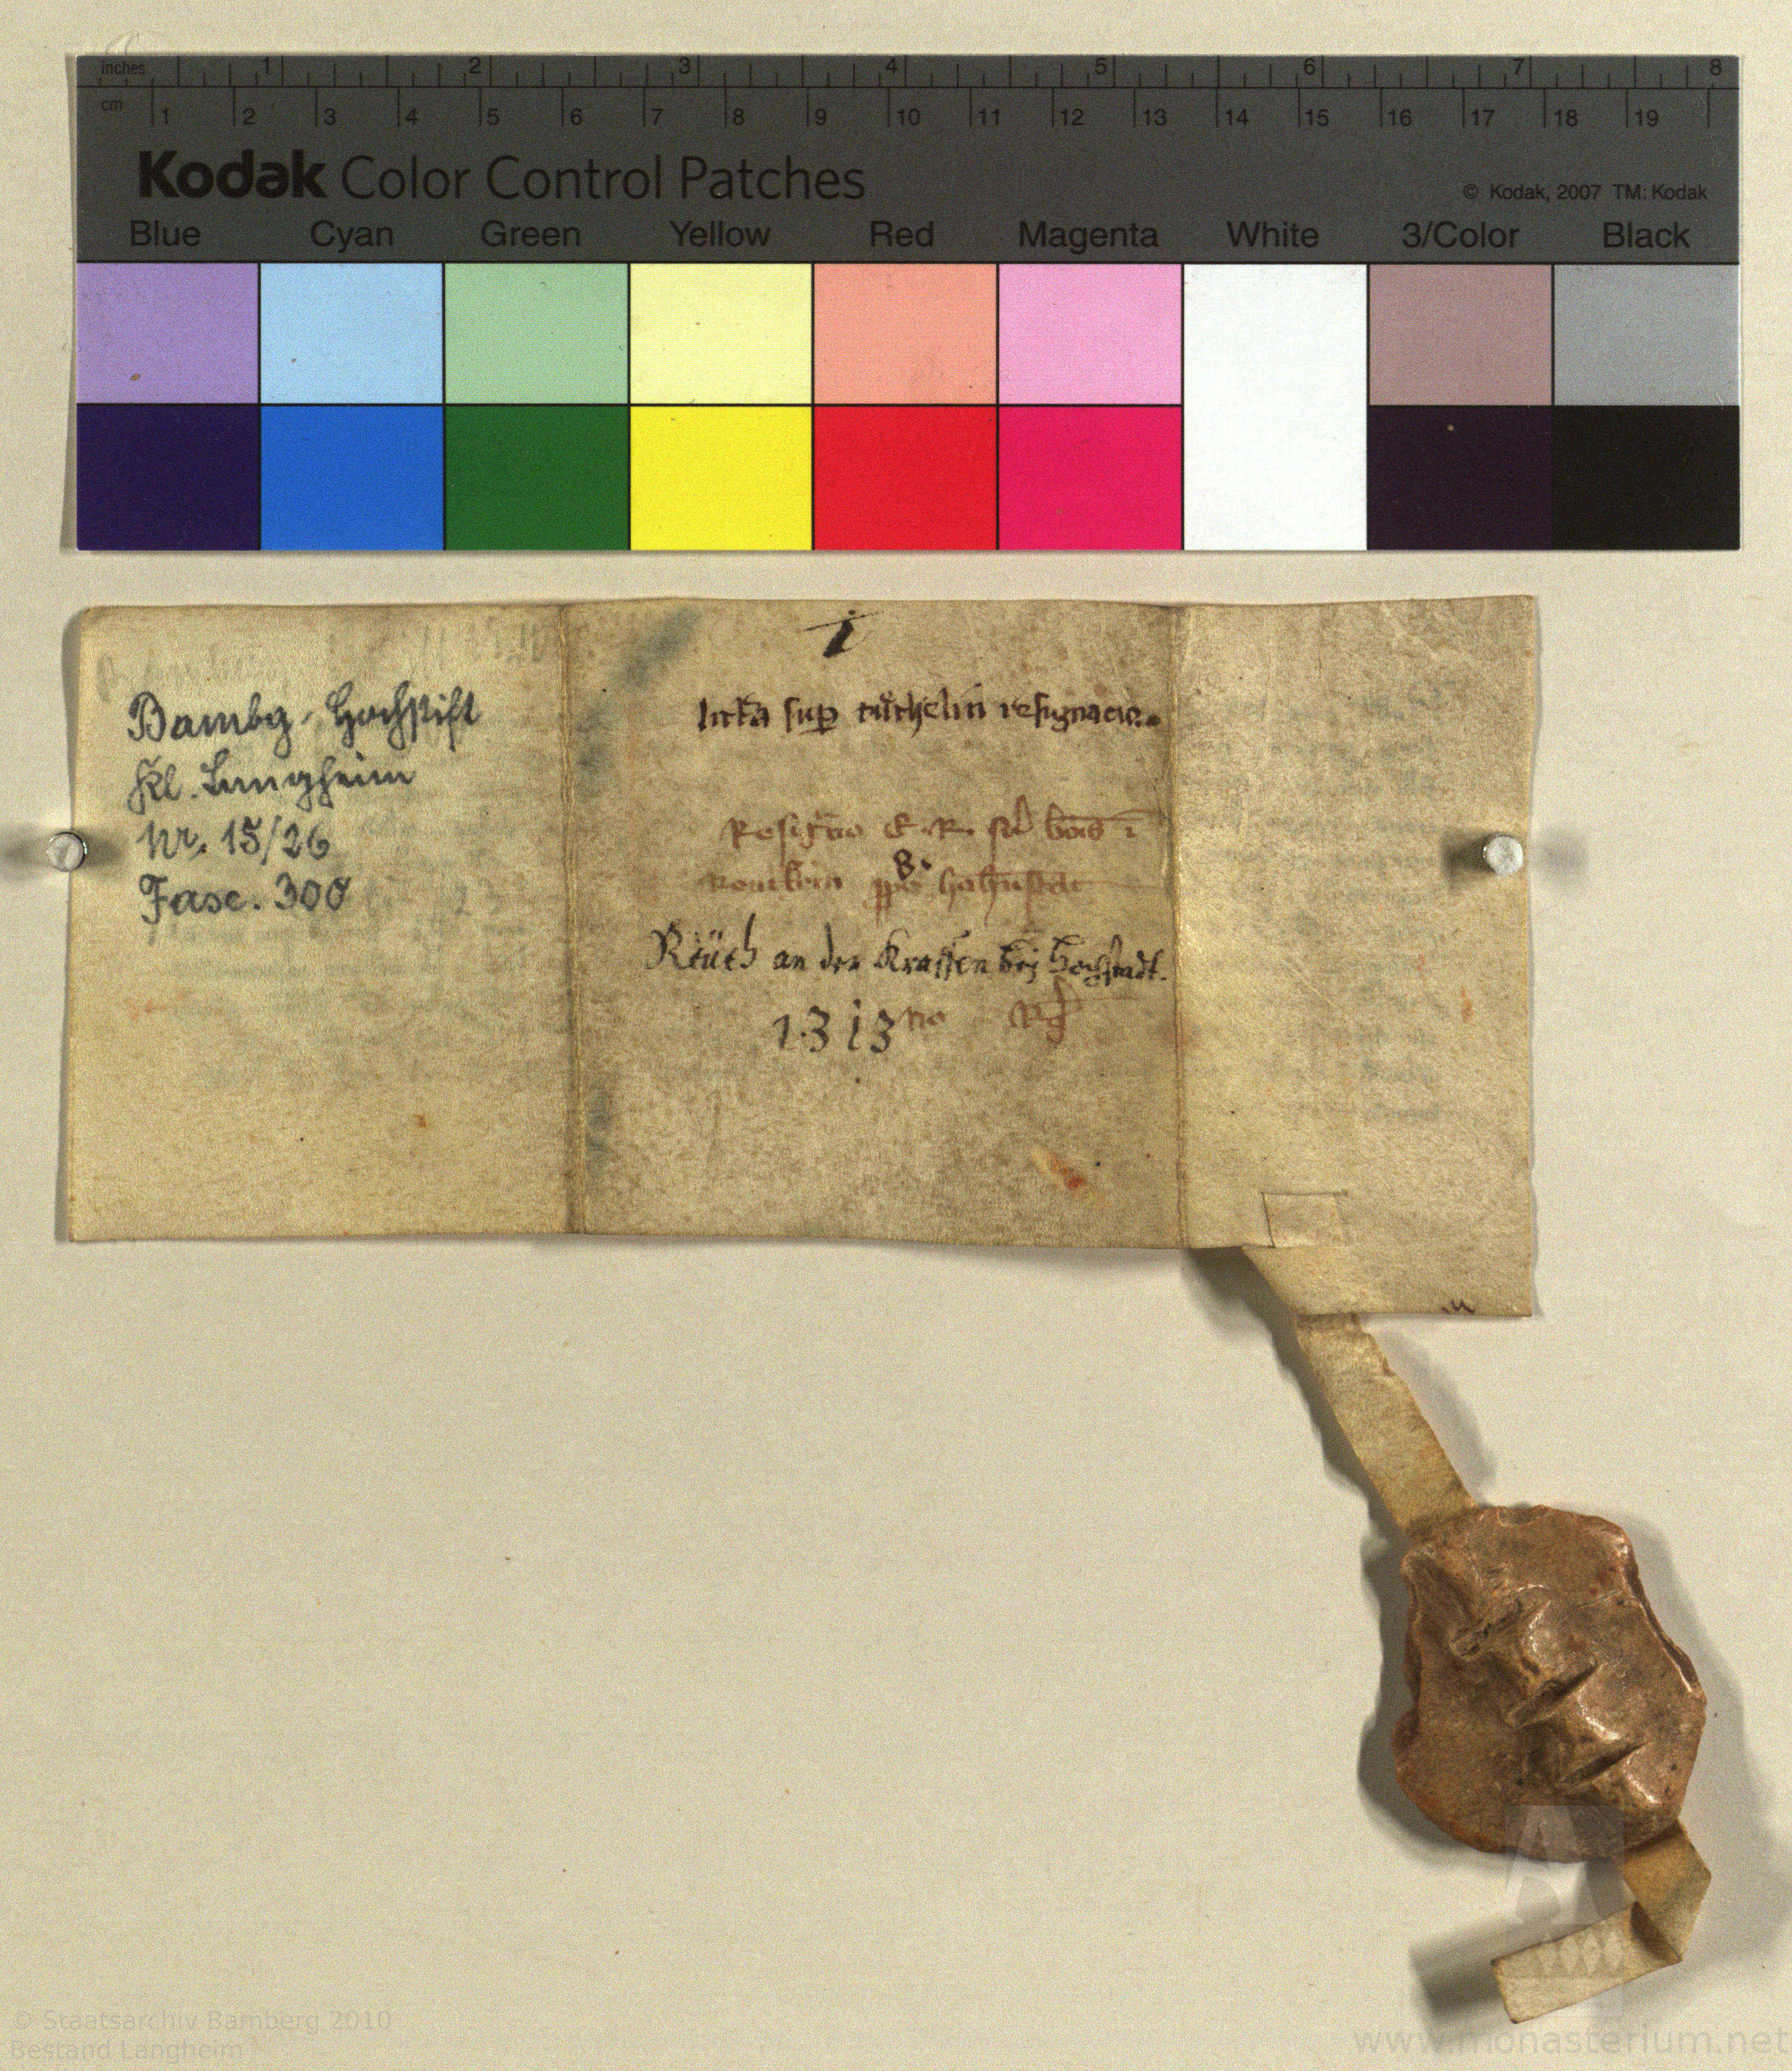 inches 1 2 3 4 5 6 7 8
cm 1 2 3 4 5 6 7 8 9 10 11 12 13 14 15 16 17 18 19
Kodak Color Control Patches
© Kodak, 2007 TM: Kodak
Blue Cyan Green Yellow Red Magenta White 3/Color Black
Bambg. Hochstift
Kl. Langheim
Nr. 15/26
Fasc. 300
1
sup resignacio
E. R. bonis
8.
Reüth an der Krassen bej Hochstadt.
1313
© Staatsarchiv Bamberg 2010
Bestand Langheim
www.monasterium.net